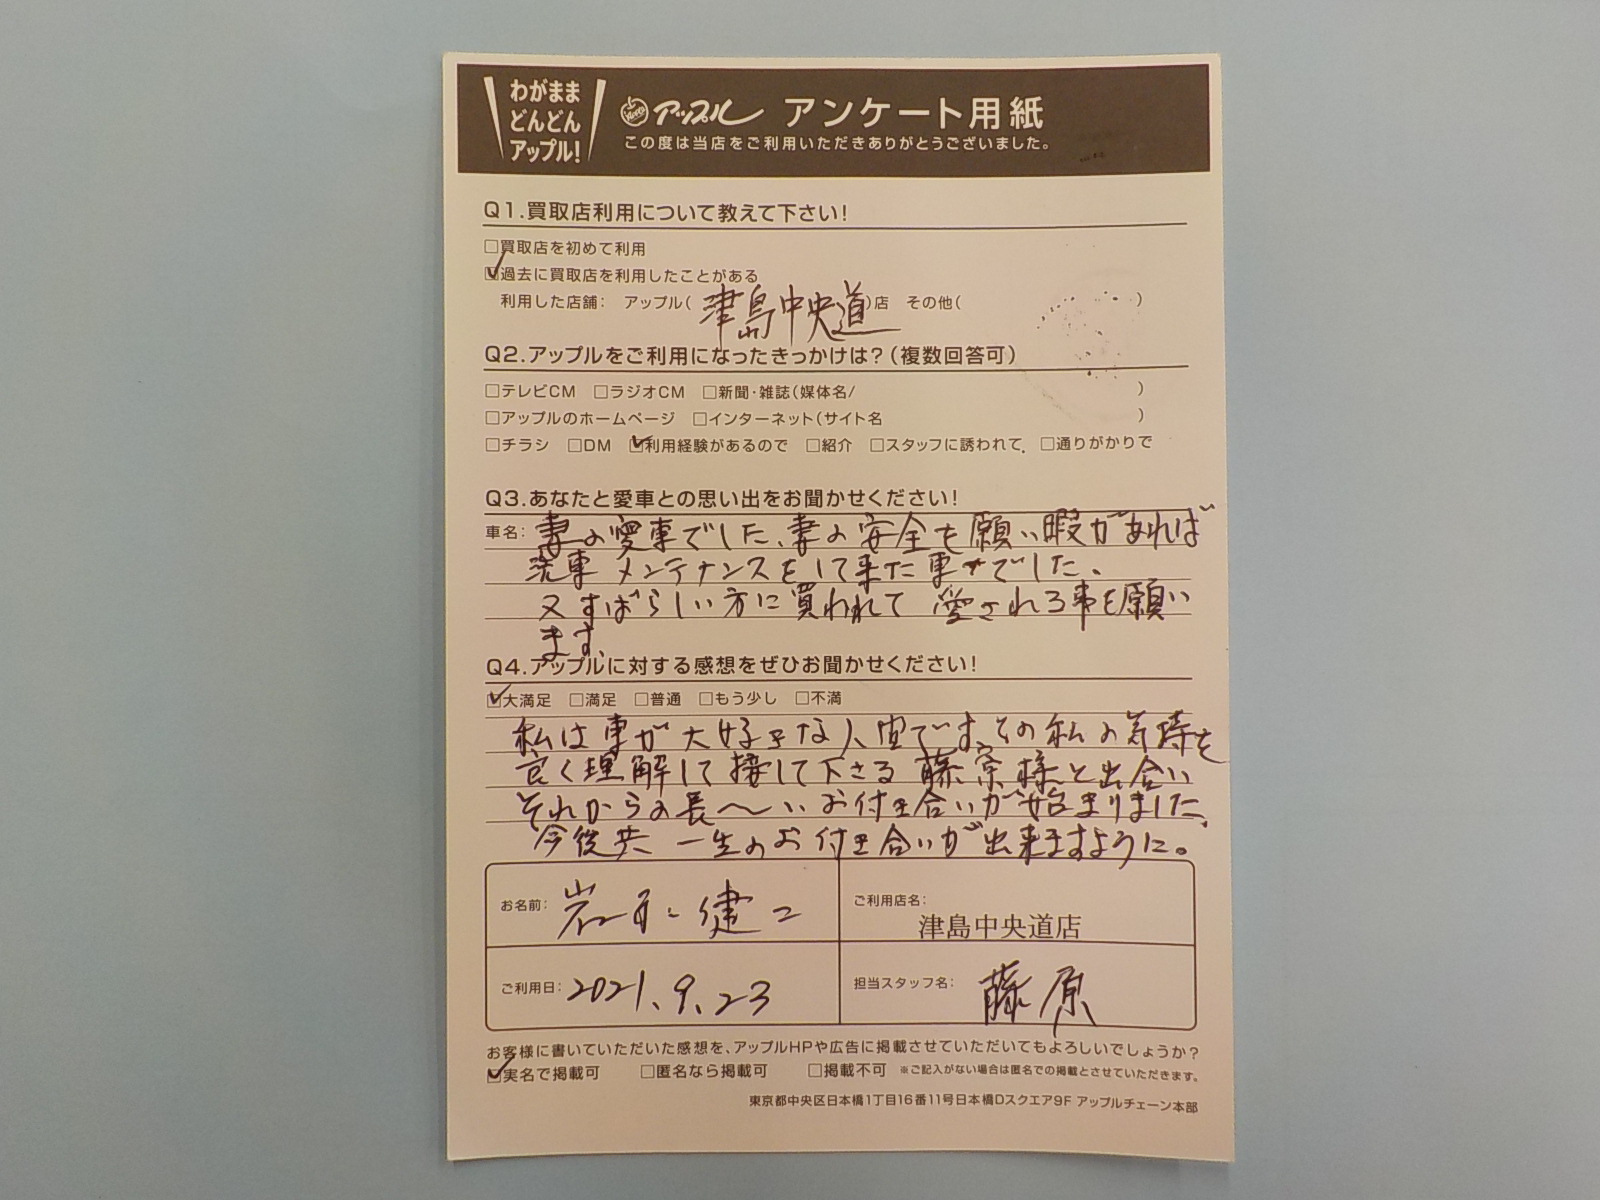 わがまま
どんどん
アップル!
アップル アンケート用紙
この度は当店をご利用いただきありがとうございました。
Q1.買取店利用について教えて下さい!
□買取店を初めて利用
☑過去に買取店を利用したことがある
利用した店舗: アップル(津島中央道)店 その他( )
Q2.アップルをご利用になったきっかけは?(複数回答可)
□テレビCM □ラジオCM □新聞・雑誌(媒体名/ )
□アップルのホームページ □インターネット(サイト名 )
□チラシ □DM ☑利用経験があるので □紹介 □スタッフに誘われて □通りがかりで
Q3.あなたと愛車との思い出をお聞かせください!
車名: 妻の愛車でした、妻の安全を願い暇があれば
洗車 メンテナンスをして来た車でした、
又すばらしい方に買われて 愛される事を願い
ます。
Q4.アップルに対する感想をぜひお聞かせください!
☑大満足 □満足 □普通 □もう少し □不満
私は車が大好きな人間です、その私の気持を
良く理解して接して下さる 藤原様と出合い
それからの長〜いお付き合いが始まりました、
今後共 一生のお付き合いが出来ますように。
お名前: 岩 健二
ご利用店名:
津島中央道店
ご利用日: 2021.9.23
担当スタッフ名: 藤原
お客様に書いていただいた感想を、アップルHPや広告に掲載させていただいてもよろしいでしょうか?
☑実名で掲載可 □匿名なら掲載可 □掲載不可 ※ご記入がない場合は匿名での掲載とさせていただきます。
東京都中央区日本橋1丁目16番11号日本橋Dスクエア9F アップルチェーン本部